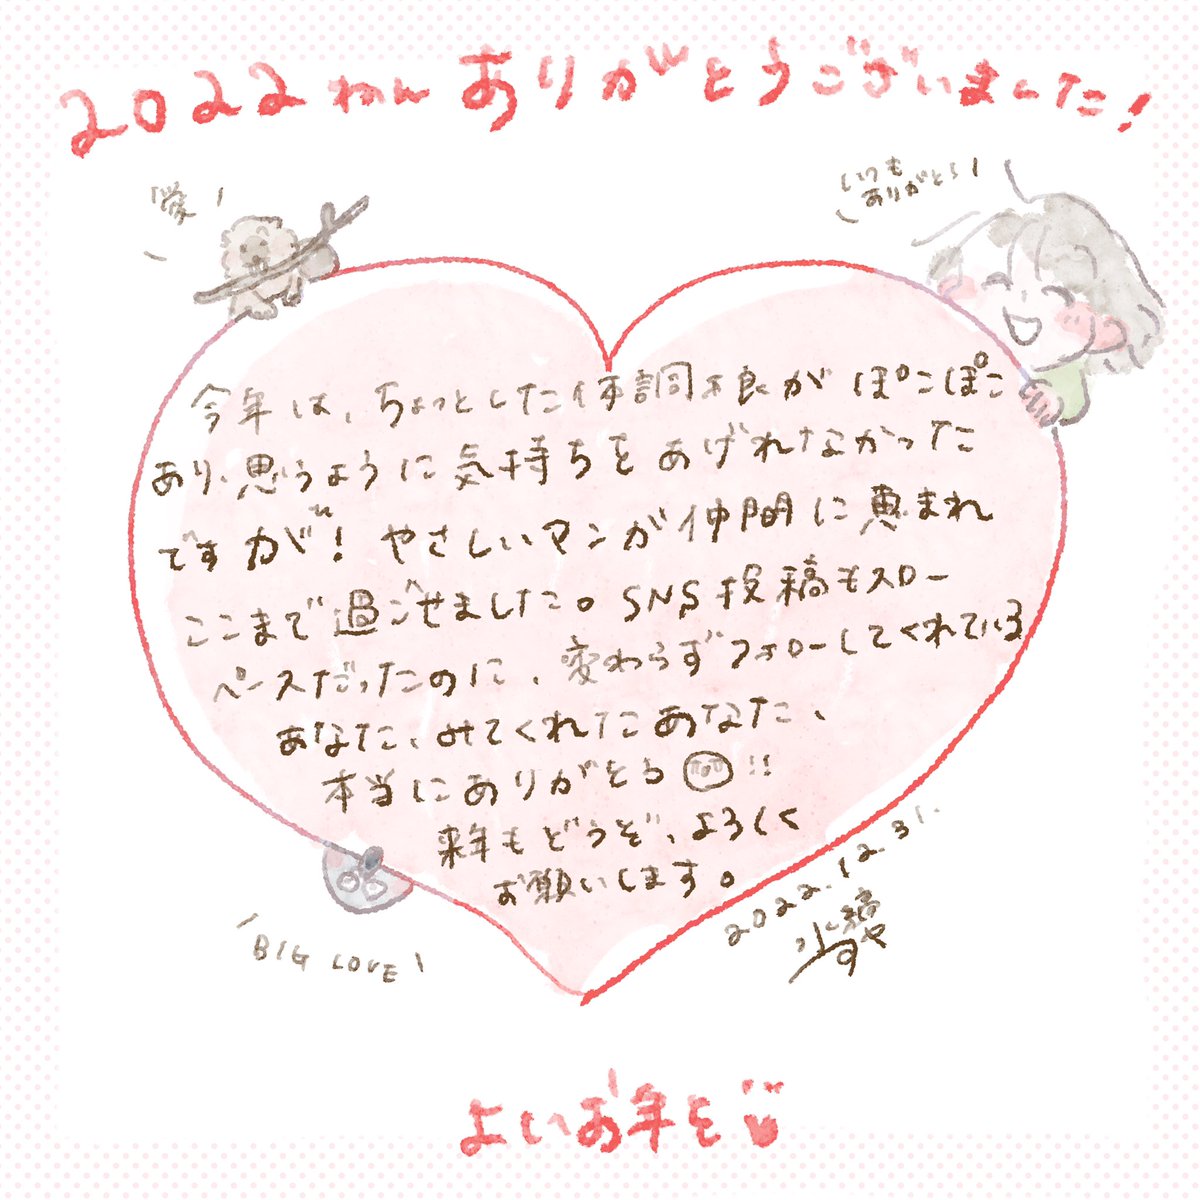 2022ねん ありがとうございました!
愛!
いつも
ありがとう!
今年は、ちょっとした体調不良がぽこぽこ
あり、思うように気持ちをあげれなかった
ですが!やさしいマンが仲間に恵まれ
ここまで過ごせました。SNS投稿もスロー
ペースだったのに、変わらずフォローしてくれている
あなた、みてくれたあなた、
本当にありがとう!!
来年もどうぞ、よろしく
お願いします。
2022.12.31.
BIG LOVE!
よいお年を